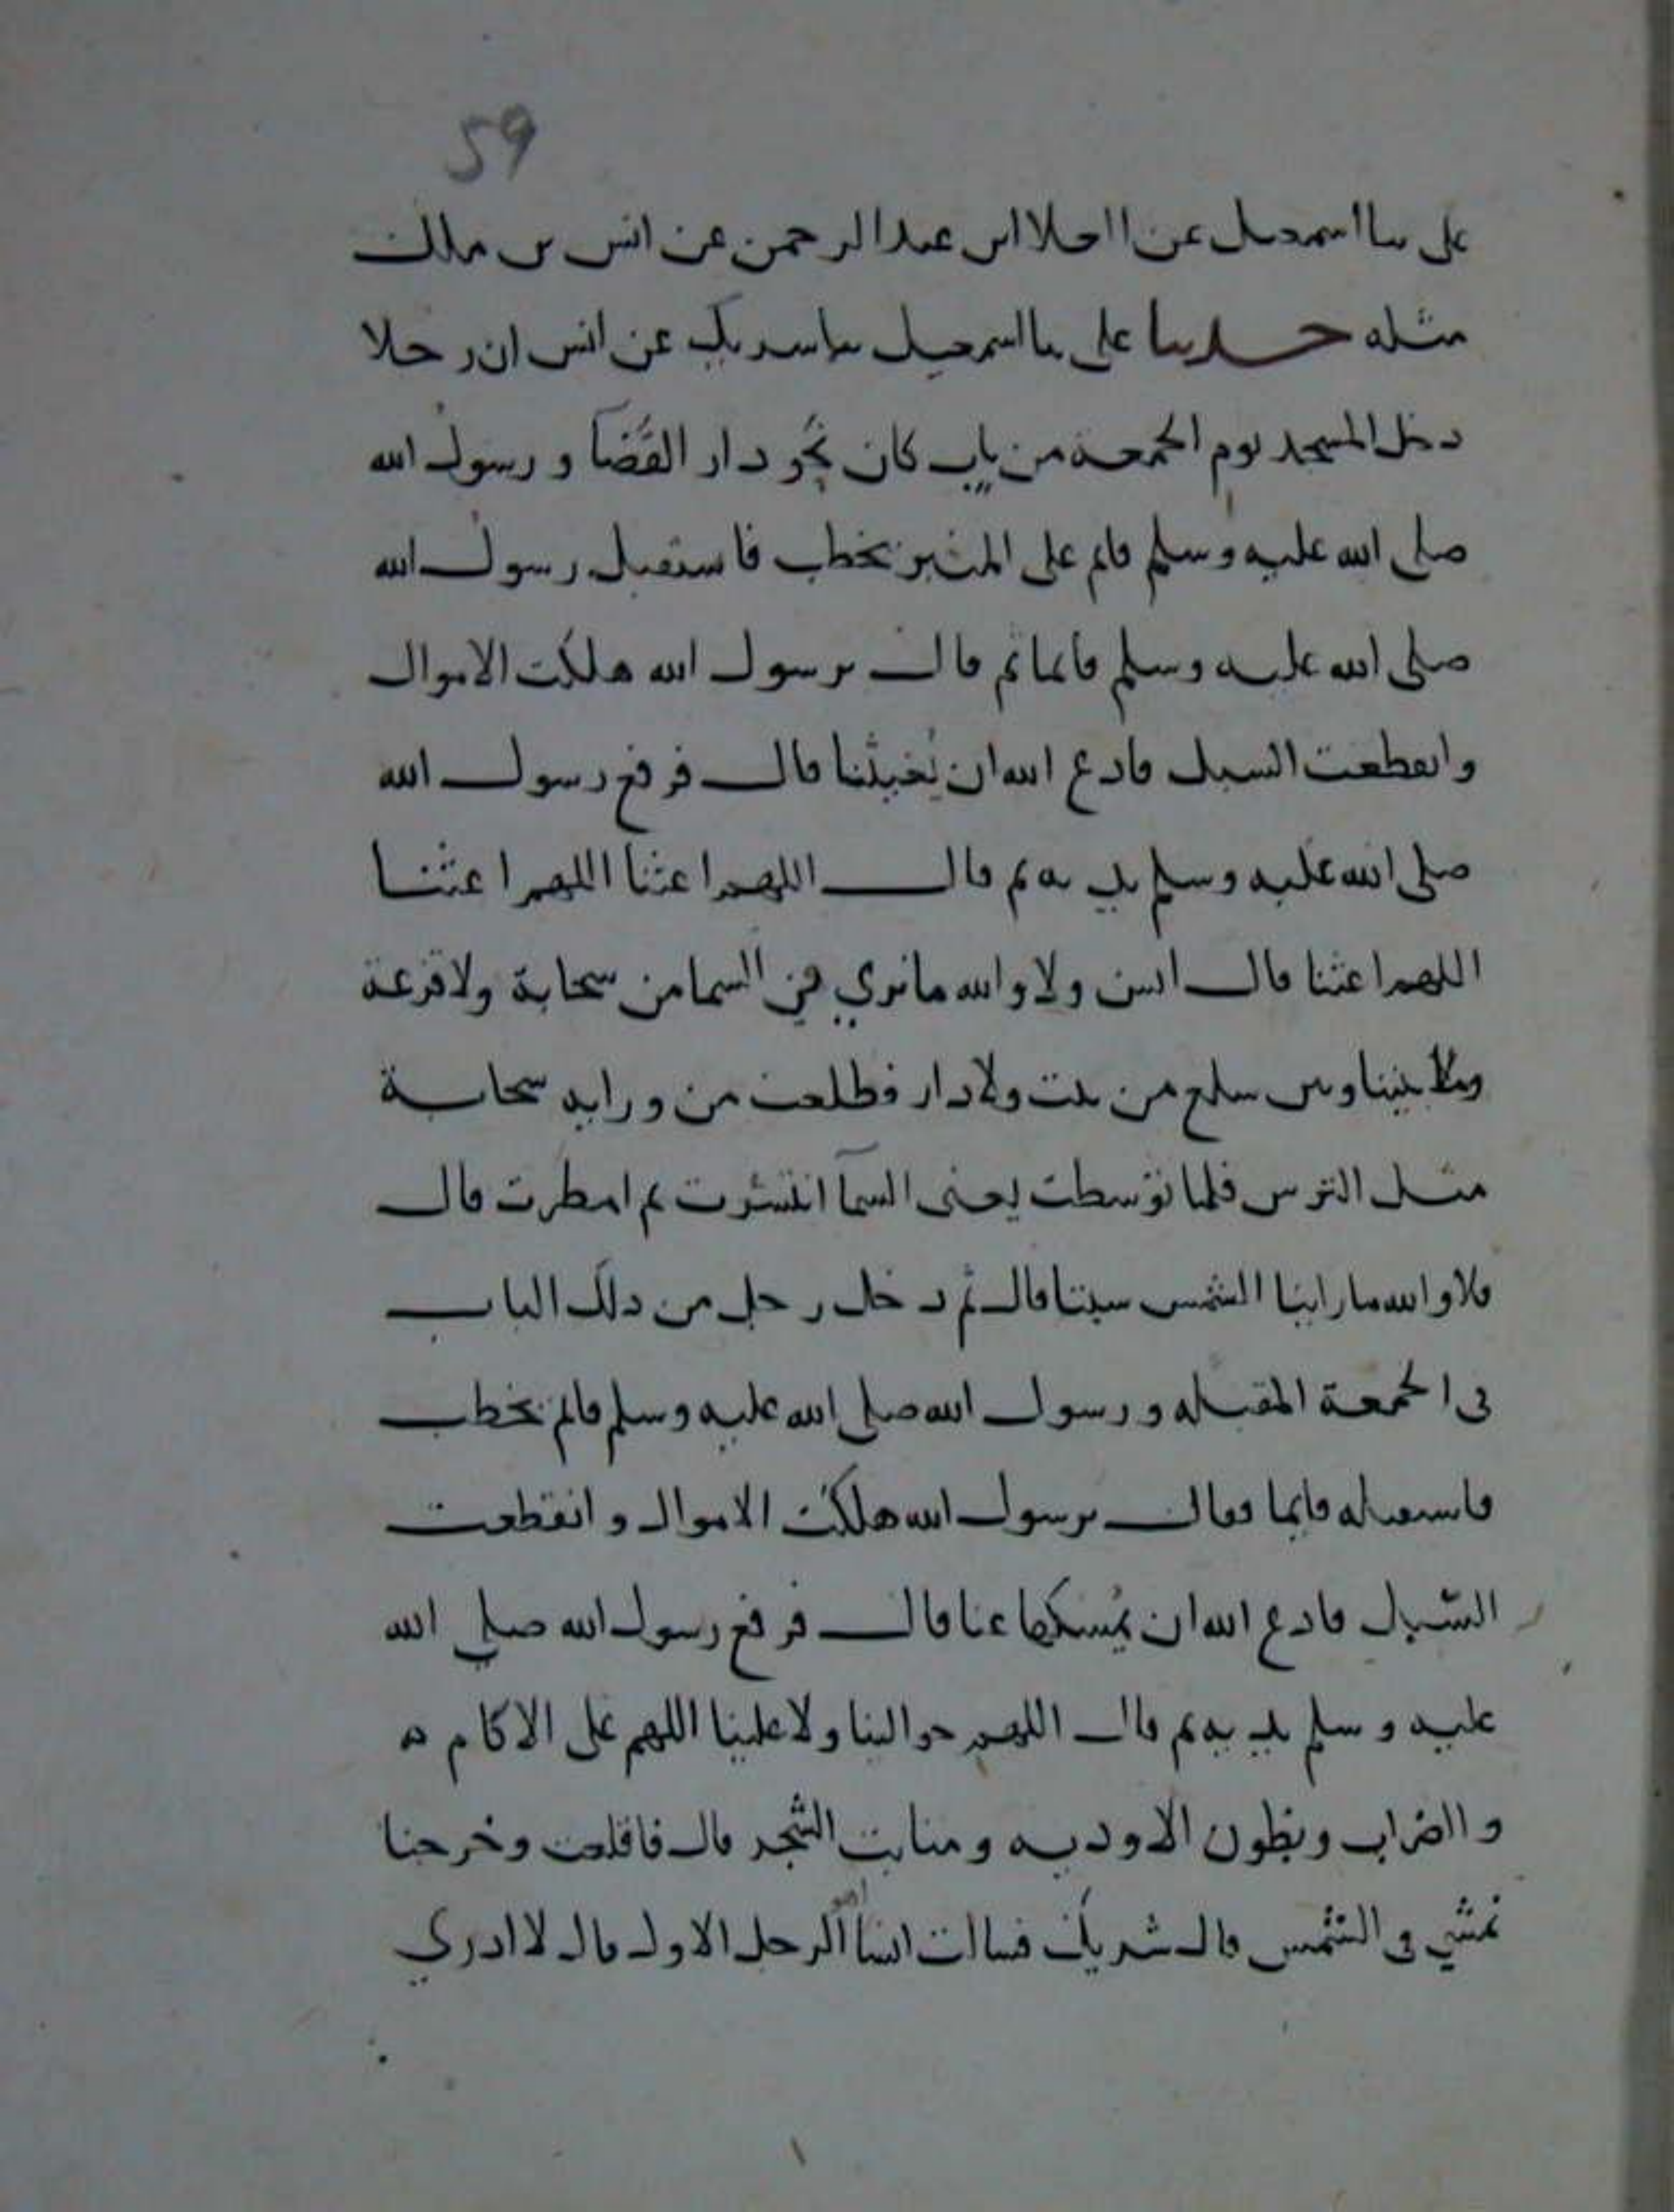 59
على ىنا اسمعيل عن العلا ابن عبد الرحمن عن انس بن ملك
مثله حدىنا على ىنا اسمعيل ىنا سريك عن انس ان رجلا
دخل المسجد يوم الجمعة من باب كان نحو دار القضآ ورسول الله
صلى الله عليه وسلم قايم على المنبر يخطب فاستقبل رسول الله
صلى الله عليه وسلم قايما ثم قال يرسول الله هلكت الاموال
وانقطعت السبل فادع الله ان يُغيثنا قال فرفع رسول الله
صلى الله عليه وسلم يديه ثم قال اللهم اغثنا اللهم اغثنا
اللهم اغثنا قال انس ولا والله ما نري في السما من سحابة ولا قزعة
ولا بيننا وبين سلع من بيت ولا دار فطلعت من ورايه سحابة
مثل الترس فلما توسطت يعنى السمآ انتشرت ثم امطرت قال
فلا والله ما راينا الشمس سبتا قال ثم دخل رجل من ذلك الباب
فى الجمعة المقبله ورسول الله صلى الله عليه وسلم قايم يخطب
فاستقبله قايما فقال يرسول الله هلكت الاموال وانقطعت
السبل فادع الله ان يُمسكها عنا قال فرفع رسول الله صلي الله
عليه وسلم يديه ثم قال اللهم حوالينا ولا علينا اللهم على الاكام ه
والضراب وبطون الاوديه ومنابت الشجر قال فاقلعت وخرجنا
نمشي فى الشمس قال شريك فسالت انسا اهو الرجل الاول قال لا ادري